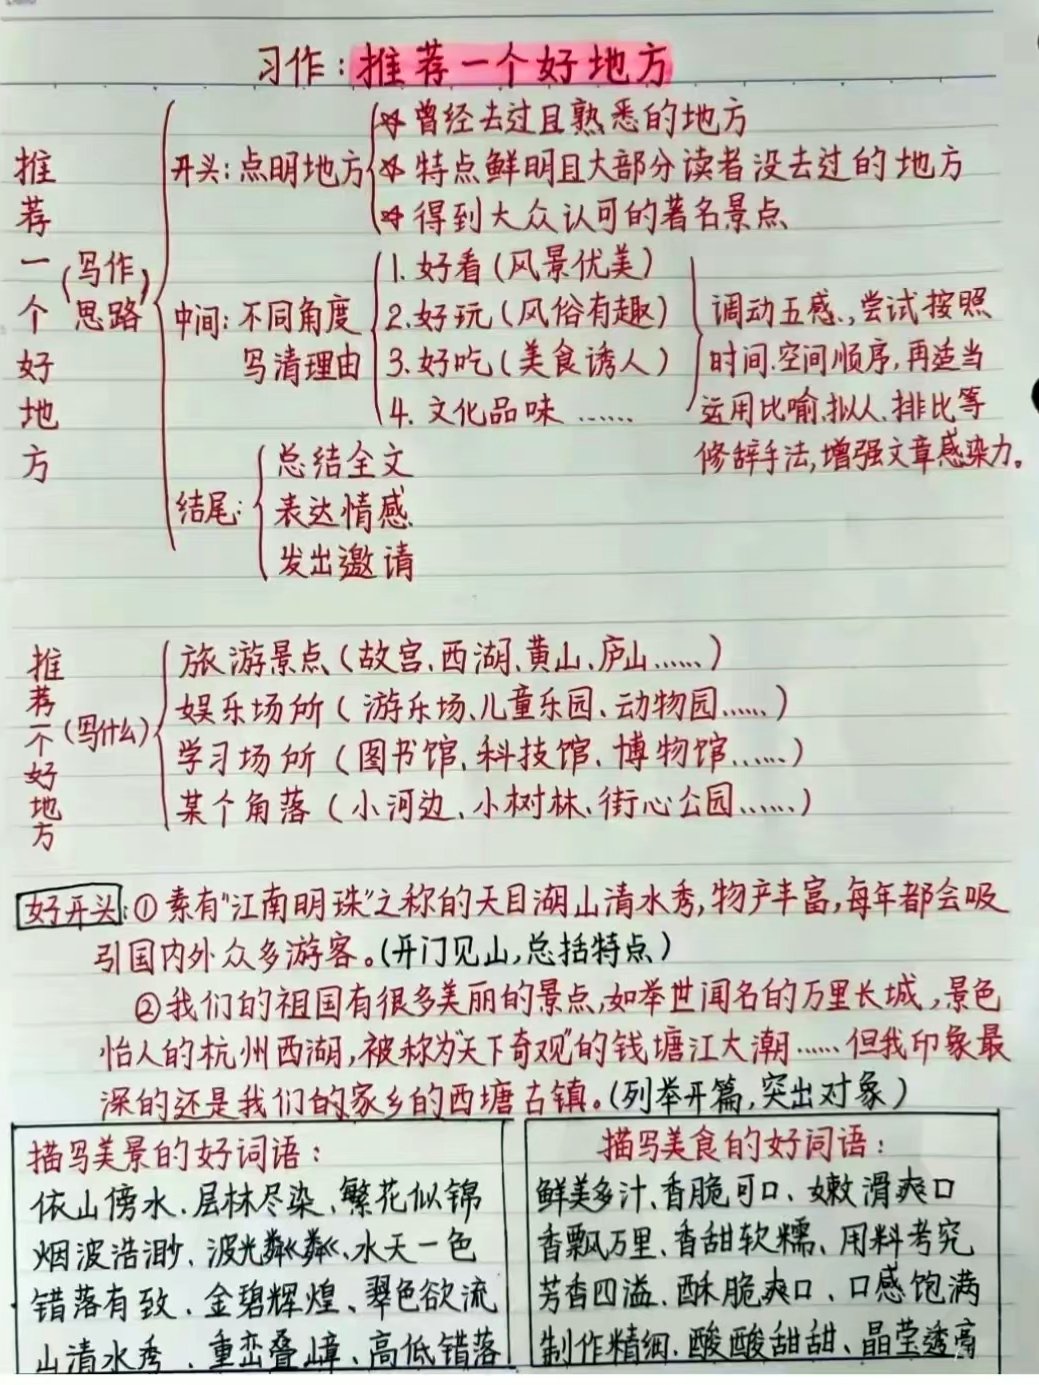 习作：推荐一个好地方
推荐一个好地方
(写作思路)
开头：点明地方
☆曾经去过且熟悉的地方
☆特点鲜明且大部分读者没去过的地方
☆得到大众认可的著名景点
中间：不同角度
写清理由
1.好看(风景优美)
2.好玩(风俗有趣)
3.好吃(美食诱人)
4.文化品味……
调动五感，尝试按照
时间、空间顺序，再适当
运用比喻、拟人、排比等
修辞手法，增强文章感染力。
结尾：
总结全文
表达情感
发出邀请
推荐一个好地方
(写什么)
旅游景点(故宫、西湖、黄山、庐山……)
娱乐场所(游乐场、儿童乐园、动物园……)
学习场所(图书馆、科技馆、博物馆……)
某个角落(小河边、小树林、街心公园……)
好开头：①素有“江南明珠”之称的天目湖山清水秀，物产丰富，每年都会吸
引国内外众多游客。(开门见山，总括特点)
②我们的祖国有很多美丽的景点，如举世闻名的万里长城，景色
怡人的杭州西湖，被称为“天下奇观”的钱塘江大潮……但我印象最
深的还是我们的家乡的西塘古镇。(列举开篇，突出对象)
描写美景的好词语：
依山傍水、层林尽染、繁花似锦
烟波浩渺、波光粼粼、水天一色
错落有致、金碧辉煌、翠色欲流
山清水秀、重峦叠嶂、高低错落
描写美食的好词语：
鲜美多汁、香脆可口、嫩滑爽口
香飘万里、香甜软糯、用料考究
芳香四溢、酥脆爽口、口感饱满
制作精细、酸酸甜甜、晶莹透亮